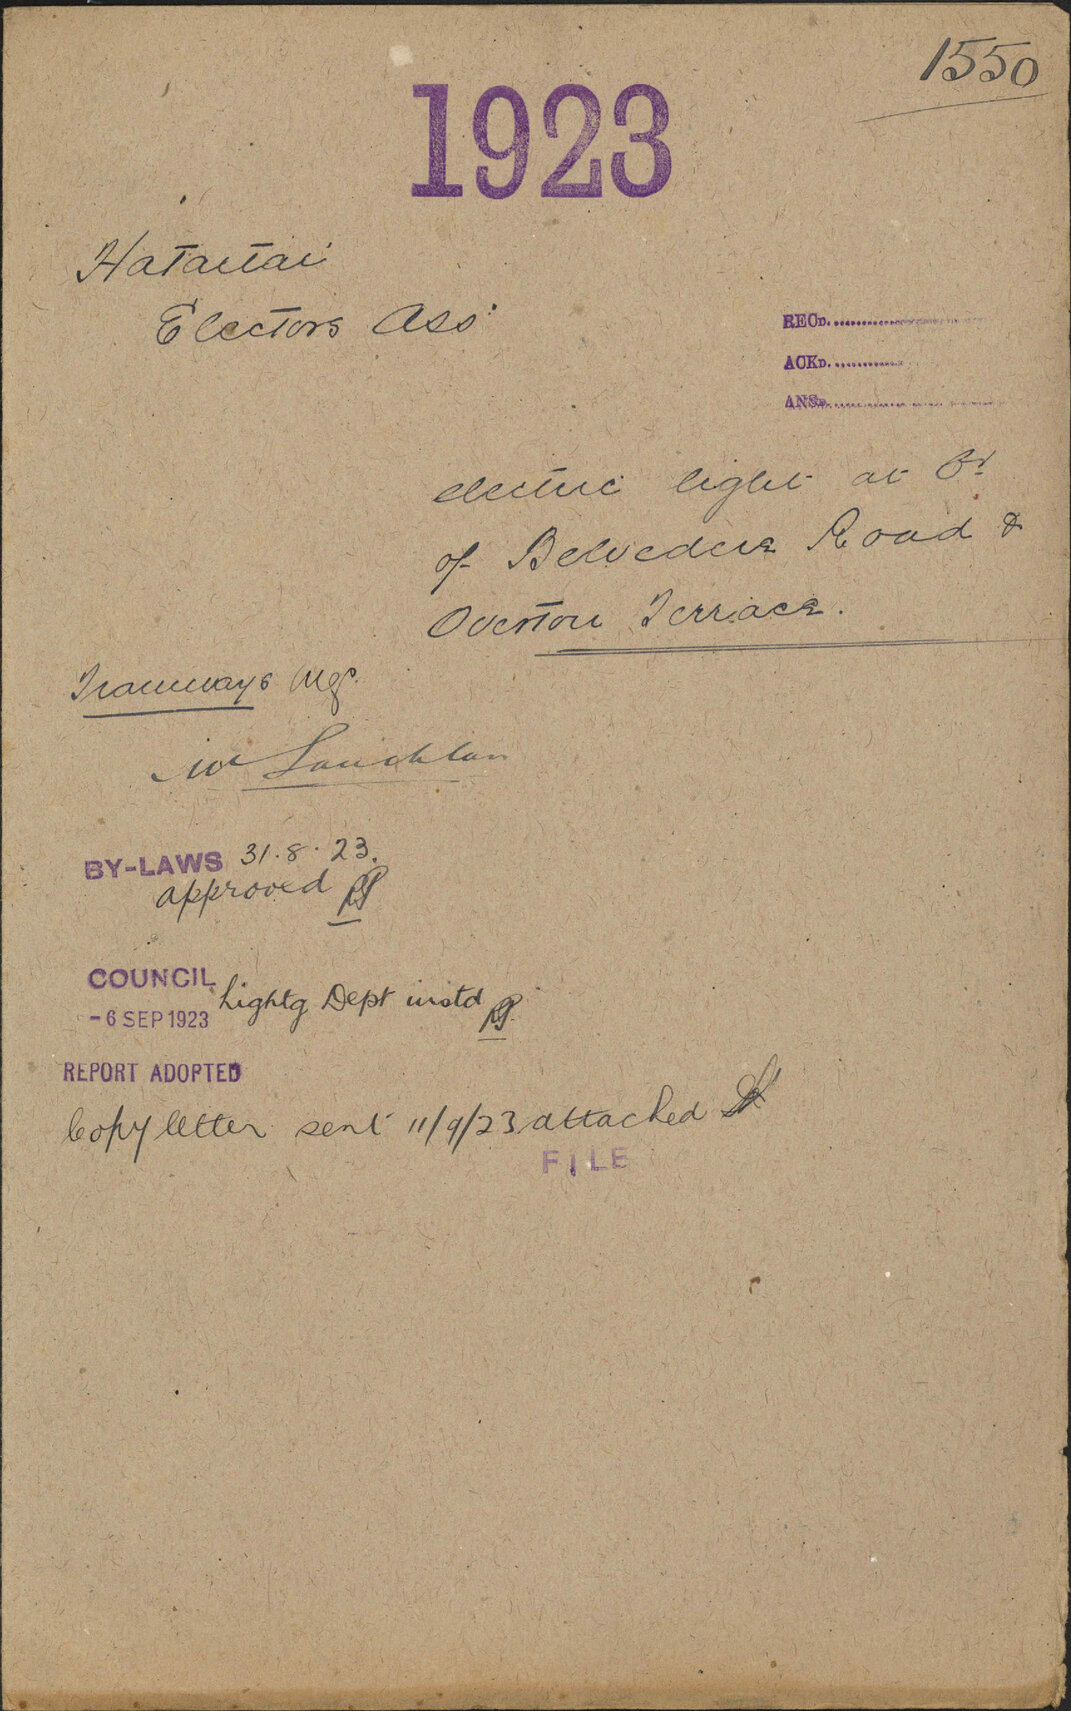 1550
1923
Hataitai
Electors Ass
RECD.
ACKD.
ANSD.
electric light at Cr
of Belvedere Road &
Overton Terrace.
Tramways Mgr.
Mr Lauchlan
BY-LAWS 31.8.23.
approved
COUNCIL Lightg Dept instd
-6 SEP 1923
REPORT ADOPTED
Copy letter sent 11/9/23 attached
FILE